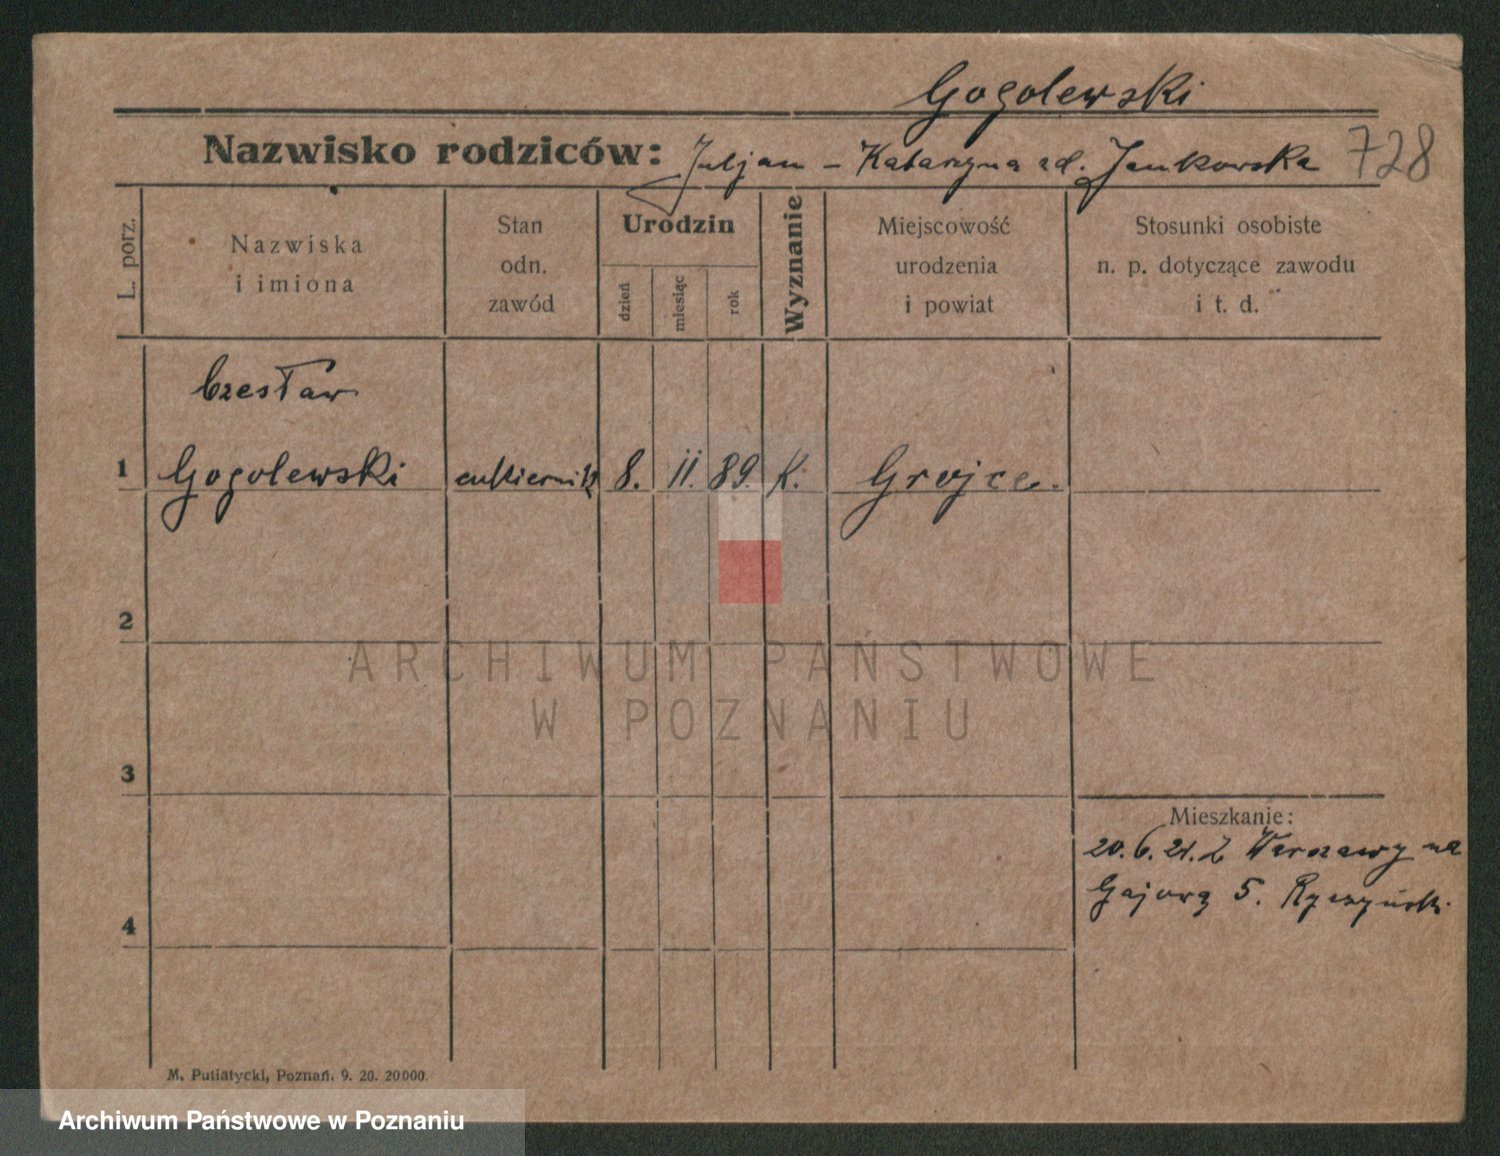 Gogolewski
Nazwisko rodziców: Juljan – Katarzyna zd. Jankowska 728
L. porz.
Nazwiska
i imiona
Stan
odn.
zawód
Urodzin
dzień
miesiąc
rok
Wyznanie
Miejscowość
urodzenia
i powiat
Stosunki osobiste
n. p. dotyczące zawodu
i t. d.
Czesław
1 Gogolewski cukiernik 8. II. 89. K. Grojce.
2
3
4
Mieszkanie:
20.6.21. Z Warszawy na
Gajową 5.
M. Putiatycki, Poznań. 9. 20. 20000.
ARCHIWUM PAŃSTWOWE
W POZNANIU
Archiwum Państwowe w Poznaniu